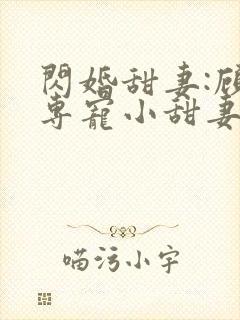 閃婚甜妻:顧
專寵小甜妻
喵污小宇